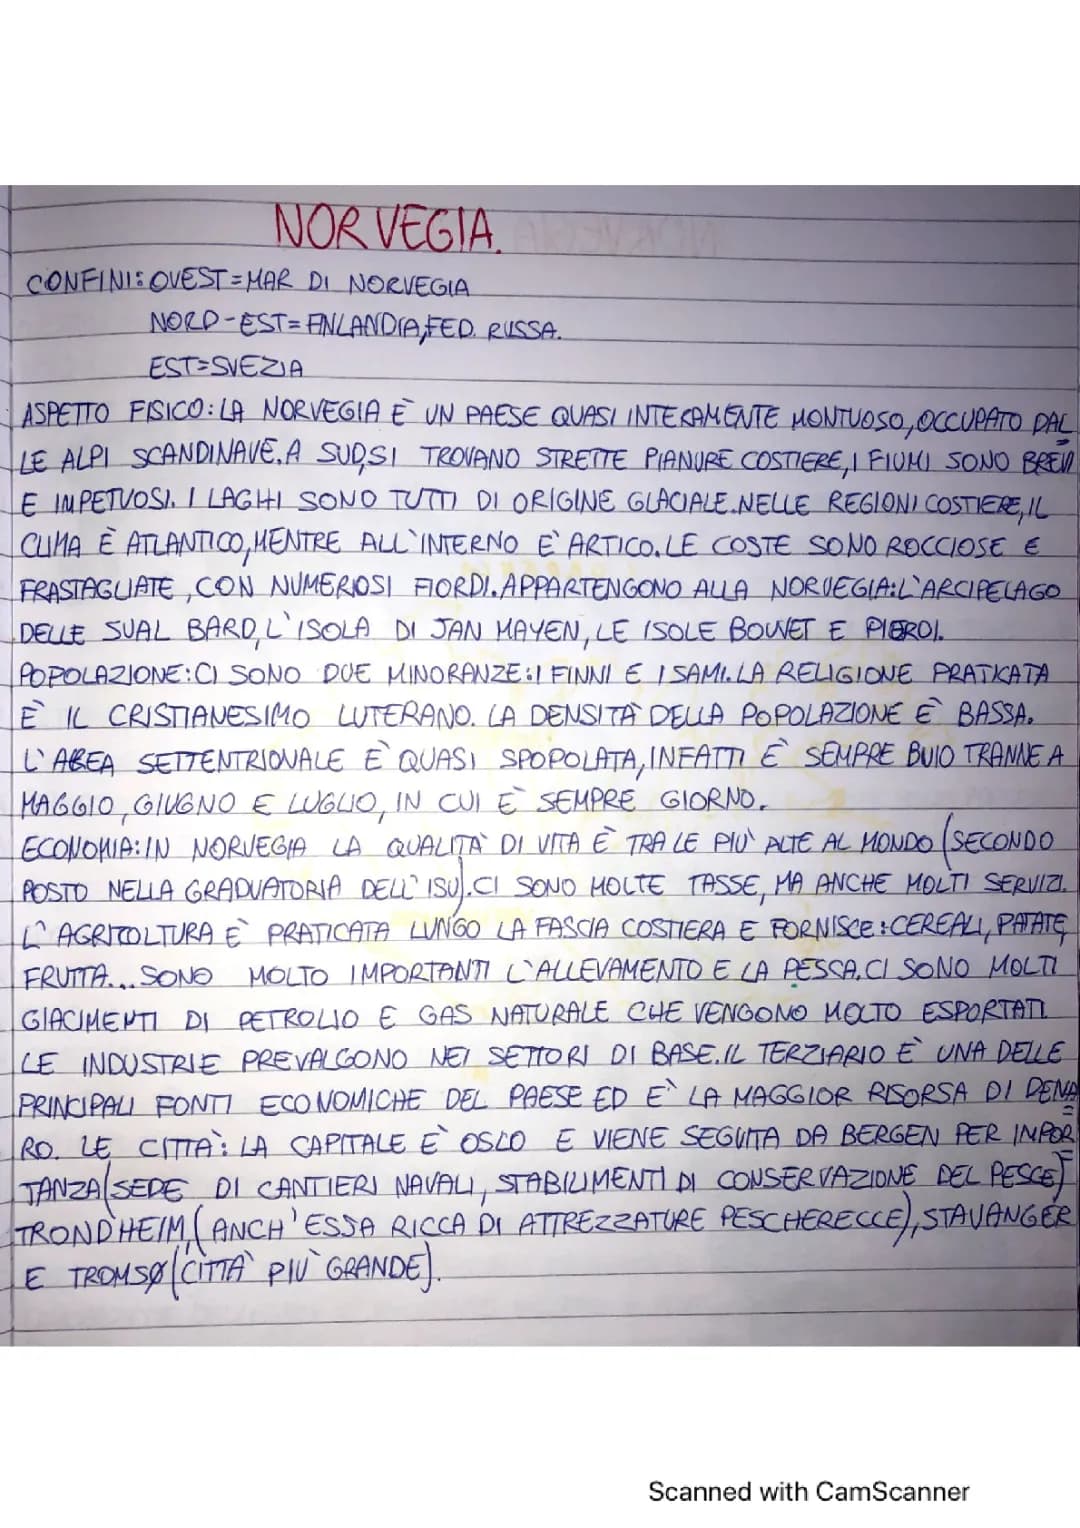 NORVEGIA.
CONFINI: OVEST=MAR DI NORVEGIA
NORD-EST= FINLANDIA, FED. RUSSA.
EST=SVEZIA
ASPETTO FISICO: LA NORVEGIA È UN PAESE QUASI INTERAMENTE MONTUOSO, OCCUPATO DAL
LE ALPI SCANDINAVE. A SUD, SI TROVANO STRETTE PIANURE COSTIERE, I FIUMI SONO BREVI
E IMPETUOSI. I LAGHI SONO TUTTI DI ORIGINE GLACIALE. NELLE REGIONI COSTIERE, IL
CLIMA È ATLANTICO, MENTRE ALL'INTERNO E' ARTICO. LE COSTE SONO ROCCIOSE E
FRASTAGLIATE, CON NUMEROSI FIORDI. APPARTENGONO ALLA NORVEGIA: L'ARCIPELAGO
DELLE SUAL BARD, L'ISOLA DI JAN MAYEN, LE ISOLE BOUVET E PIEROI.
POPOLAZIONE: CI SONO DUE MINORANZE: I FINNI E I SAMI. LA RELIGIONE PRATICATA
È IL CRISTIANESIMO LUTERANO. LA DENSITÀ DELLA POPOLAZIONE È BASSA.
L'AREA SETTENTRIONALE È QUASI SPOPOLATA, INFATTI È SEMPRE BUIO TRANNE A
MAGGIO, GIUGNO E LUGLIO, IN CUI È SEMPRE GIORNO.
ECONOMIA: IN NORVEGIA LA QUALITÀ DI VITA È TRA LE PIÙ ALTE AL MONDO (SECONDO
POSTO NELLA GRADUATORIA DELL'ISU). CI SONO MOLTE TASSE, MA ANCHE MOLTI SERVIZI.
L'AGRICOLTURA È PRATICATA LUNGO LA FASCIA COSTIERA E FORNISCE: CEREALI, PATATE,
FRUTTA... SONO MOLTO IMPORTANTI L'ALLEVAMENTO E LA PESCA. CI SONO MOLTI
GIACIMENTI DI PETROLIO E GAS NATURALE CHE VENGONO MOLTO ESPORTATI.
LE INDUSTRIE PREVALGONO NEI SETTORI DI BASE. IL TERZIARIO È UNA DELLE
PRINCIPALI FONTI ECONOMICHE DEL PAESE ED È LA MAGGIOR RISORSA DI DENA
RO. LE CITTÀ: LA CAPITALE È OSLO E VIENE SEGUITA DA BERGEN PER IMPOR
TANZA (SEDE DI CANTIERI NAVALI, STABILIMENTI DI CONSERVAZIONE DEL PESCE)
TRONDHEIM, (ANCH'ESSA RICCA DI ATTREZZATURE PESCHERECCE), STAVANGER
E TROMSØ (CITTÀ PIÙ GRANDE).
Scanned with CamScanner